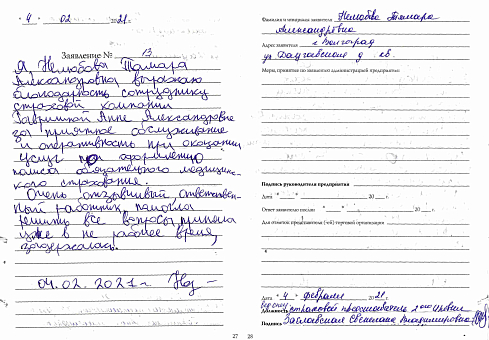 " 4 " 02 2021 г.
Заявление № 13
Я Нелюбова Тамара
Александровна выражаю
благодарность сотруднику
страховой компании
Анне Александровне
за приятное обслуживание
и оперативность при оказании
услуг по оформлению
полиса обязательного медицинс-
кого страхования.
Очень отзывчивый ответствен-
ный работник, помогла
решить все вопросы приняла
уже в не рабочее время,
задержалась.
04.02.2021 г.
27
Фамилия и инициалы заявителя Нелюбова Тамара
Александровна
Адрес заявителя г. Волгоград
ул. д. кв.
Меры, принятые по заявлению администрацией предприятия:
Подпись руководителя предприятия
Дата " " 20 г.
Ответ заявителю послан " " 20 г.
Для отметок представителя (-ей) торговой организации
Дата " 4 " февраля 2021 г.
Должность страховой представитель 2 уровня
Подпись Светлана Владимировна
28